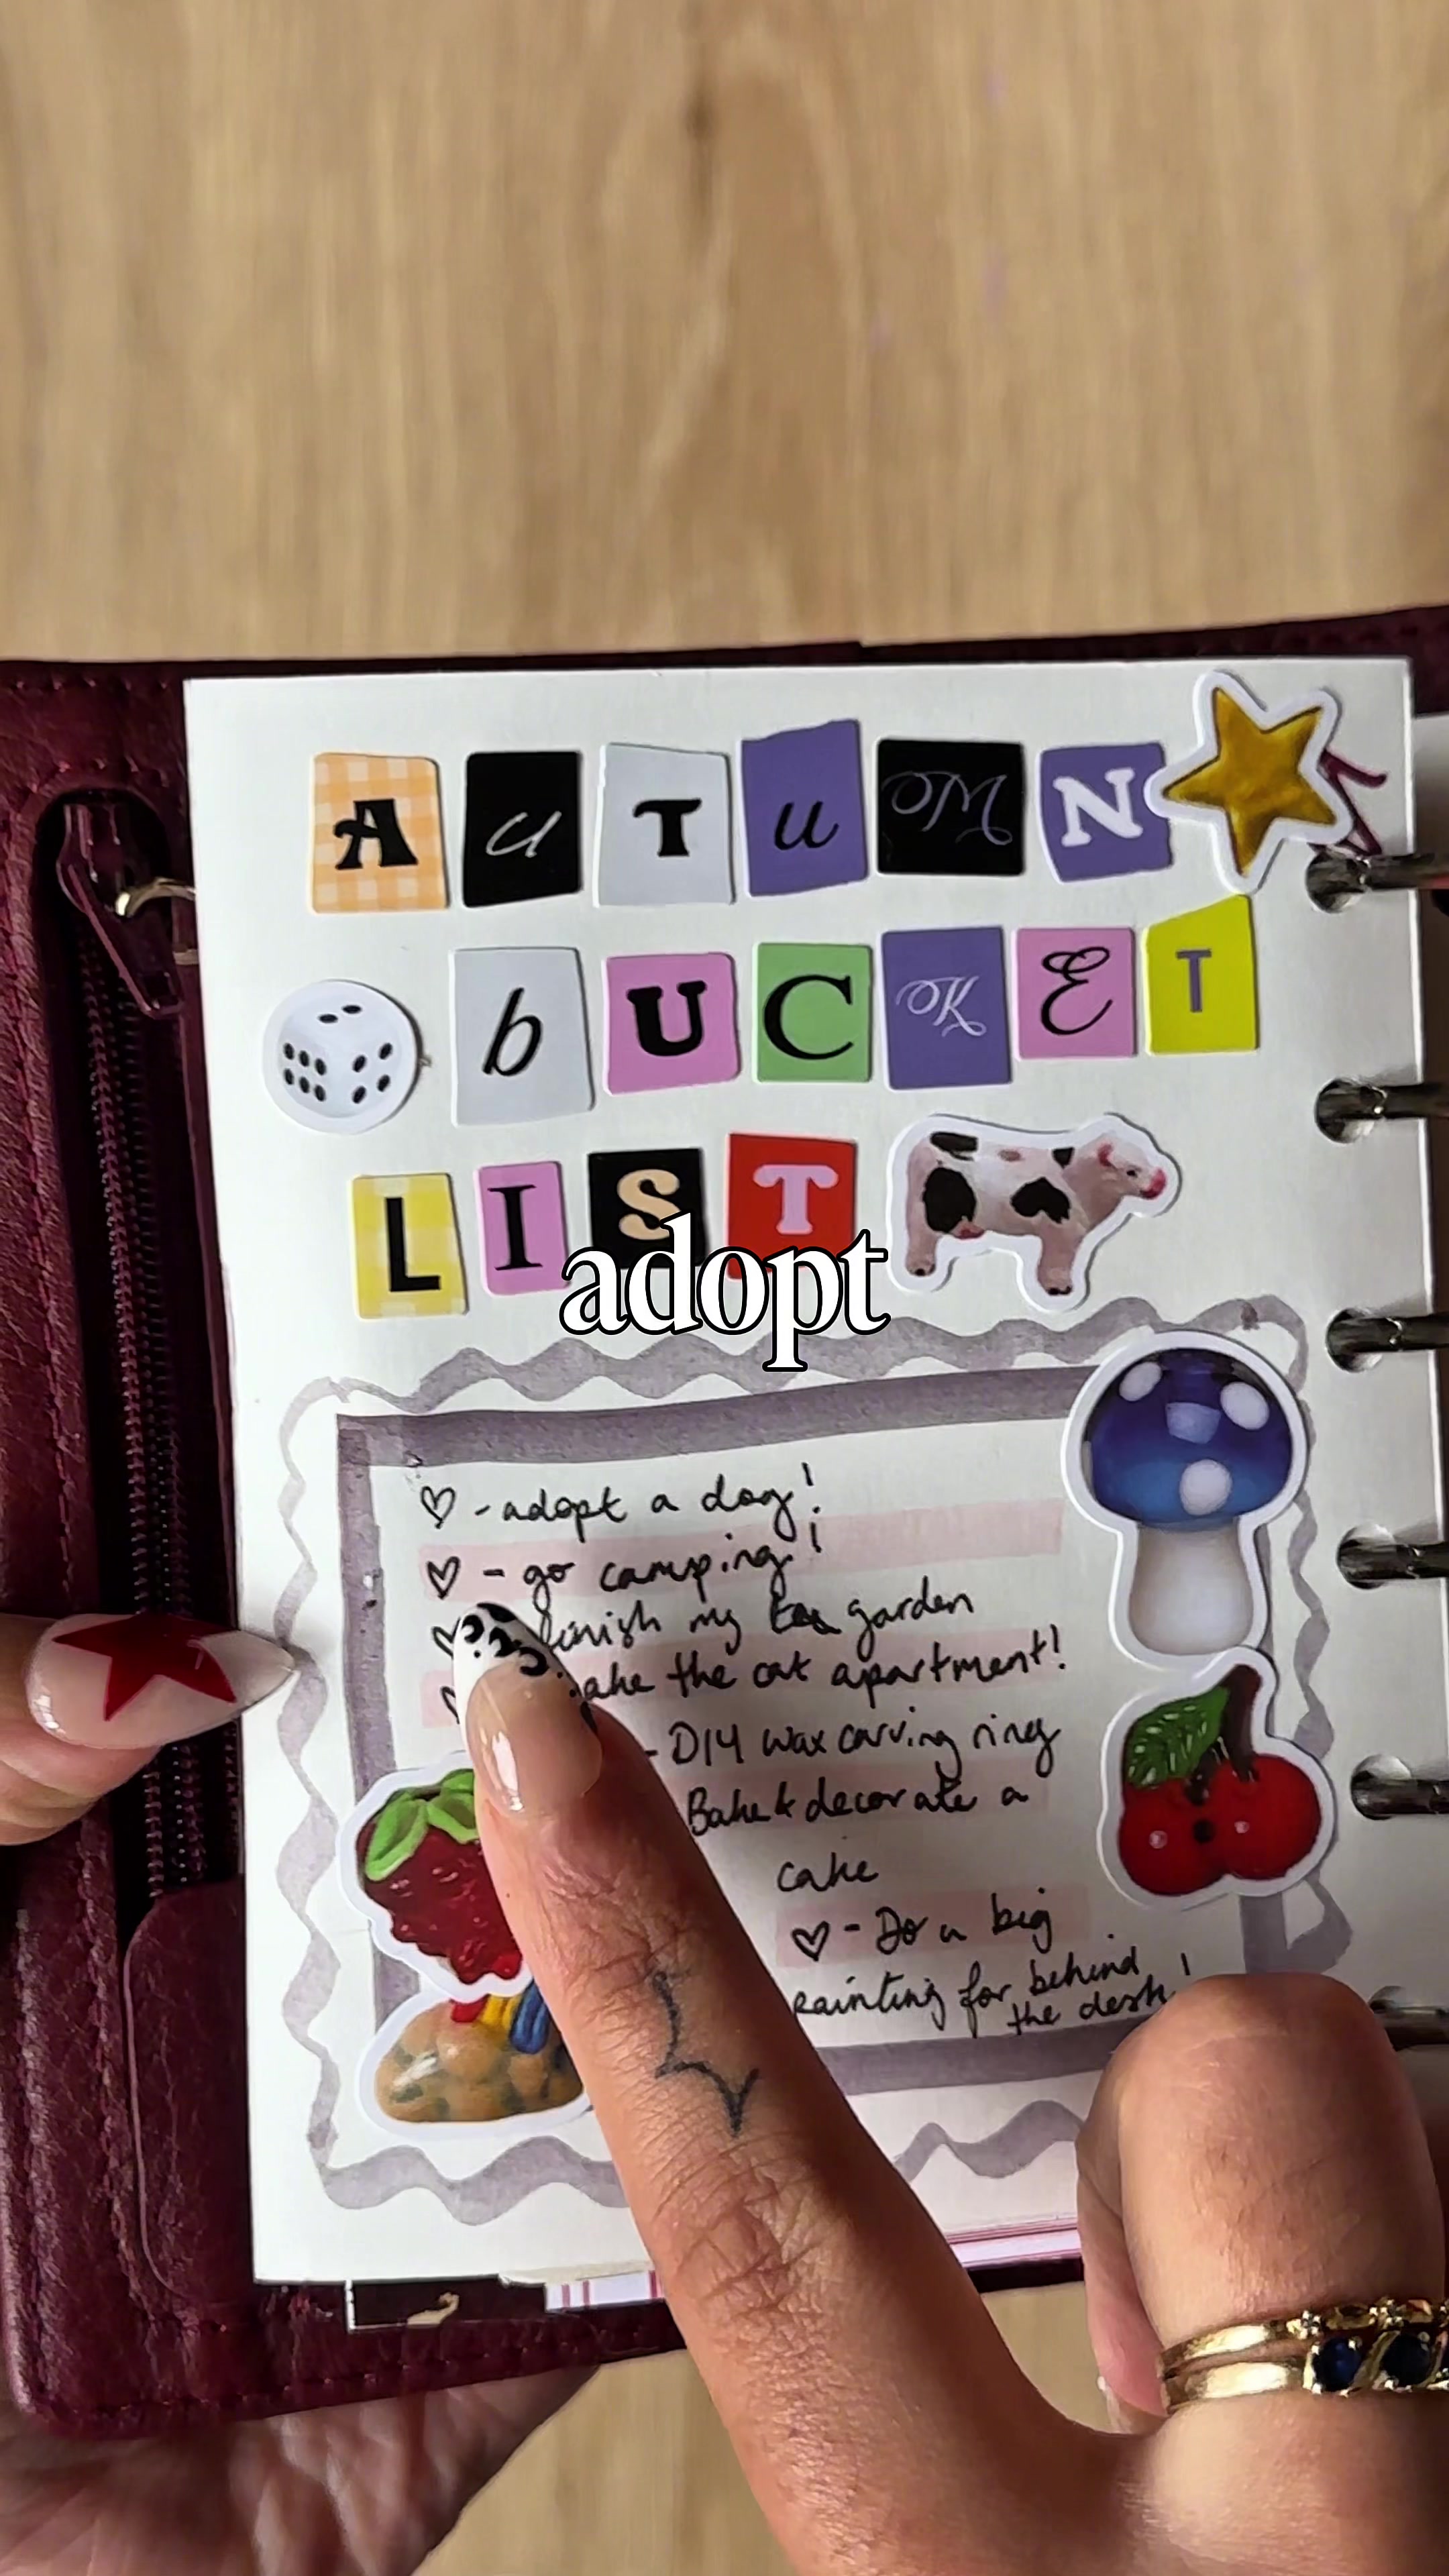 AuTuMN
bUCKET
LIST
adopt
♡ - adopt a dog!
♡ - go camping!
♡ finish my garden
ake the cat apartment!
- DIY wax carving ring
Bake & decorate a
cake
♡ - Do a big
painting for behind
the desk!